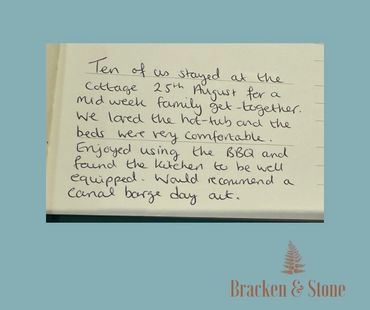 Ten of us stayed at the
cottage 25th August for a
mid week family get-together.
We loved the hot-tub and the
beds were very comfortable.
Enjoyed using the BBQ and
found the kitchen to be well
equipped. Would recommend a
canal barge day out.
Bracken & Stone